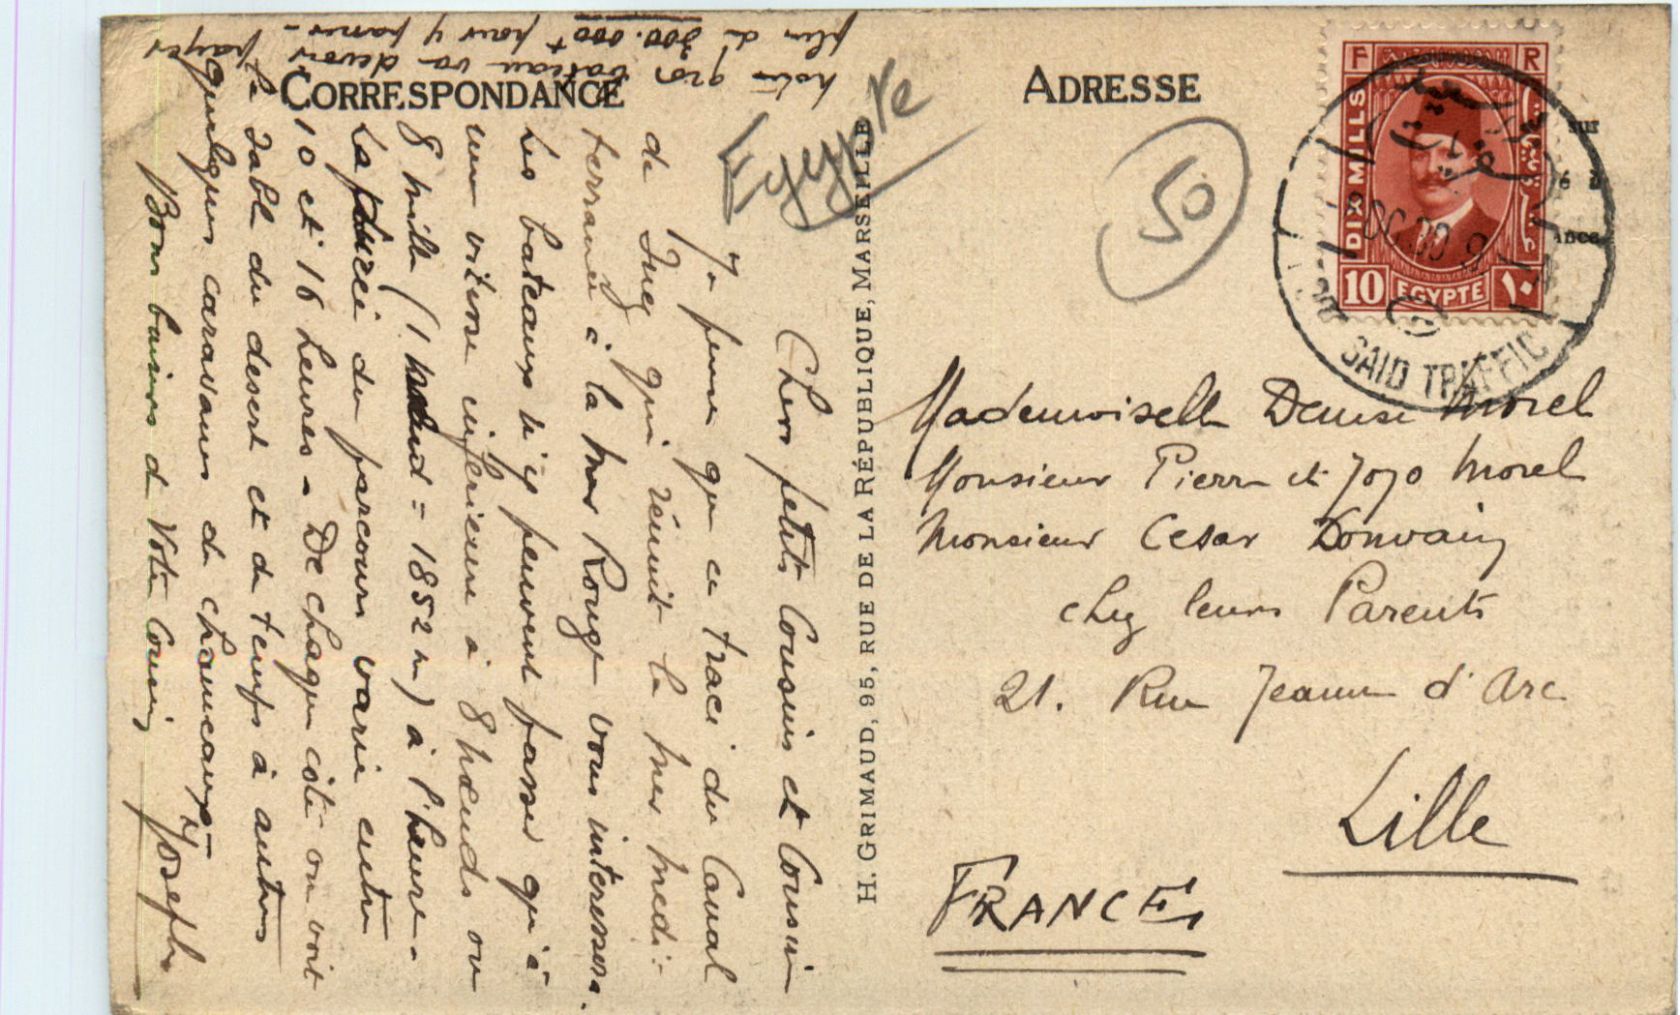 CORRESPONDANCE
Chers petits Cousins et Cousine
Je pense que ce tracé du Canal
de Suez qui réunit la mer Médi-
terranée à la mer Rouge vous interessera.
Les bateaux n'y peuvent passer qu'à
une vitesse inférieure à 8 nœuds ou
8 mille (1 nœud = 1852 m) à l'heure-
La durée du parcours varie entre
10 et 16 heures - De chaque côté on voit
le sable du désert et de temps à autres
quelques caravanes de chameaux-
Bons baisers de Votre Cousin
Joseph
notre gros bateau va devoir payer
plus de 300.000 f pour y passer -
Egypte
H. GRIMAUD, 95, RUE DE LA RÉPUBLIQUE, MARSEILLE
ADRESSE
50
F R
DIX MILLS
10 EGYPTE ١٠
SAID TRAFFIC
sur
é
ance
Mademoiselle Denise Morel
Monsieur Pierre et Jojo Morel
Monsieur Cesar
chez leurs Parents
21. Rue Jeanne d'Arc
Lille
FRANCE